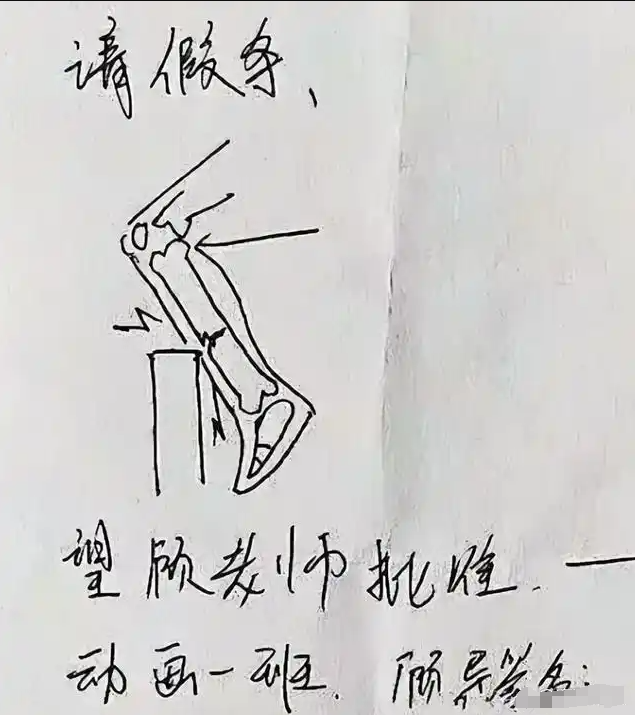 请假条、
望顾老师批准.
动画一班. 顾导签名: